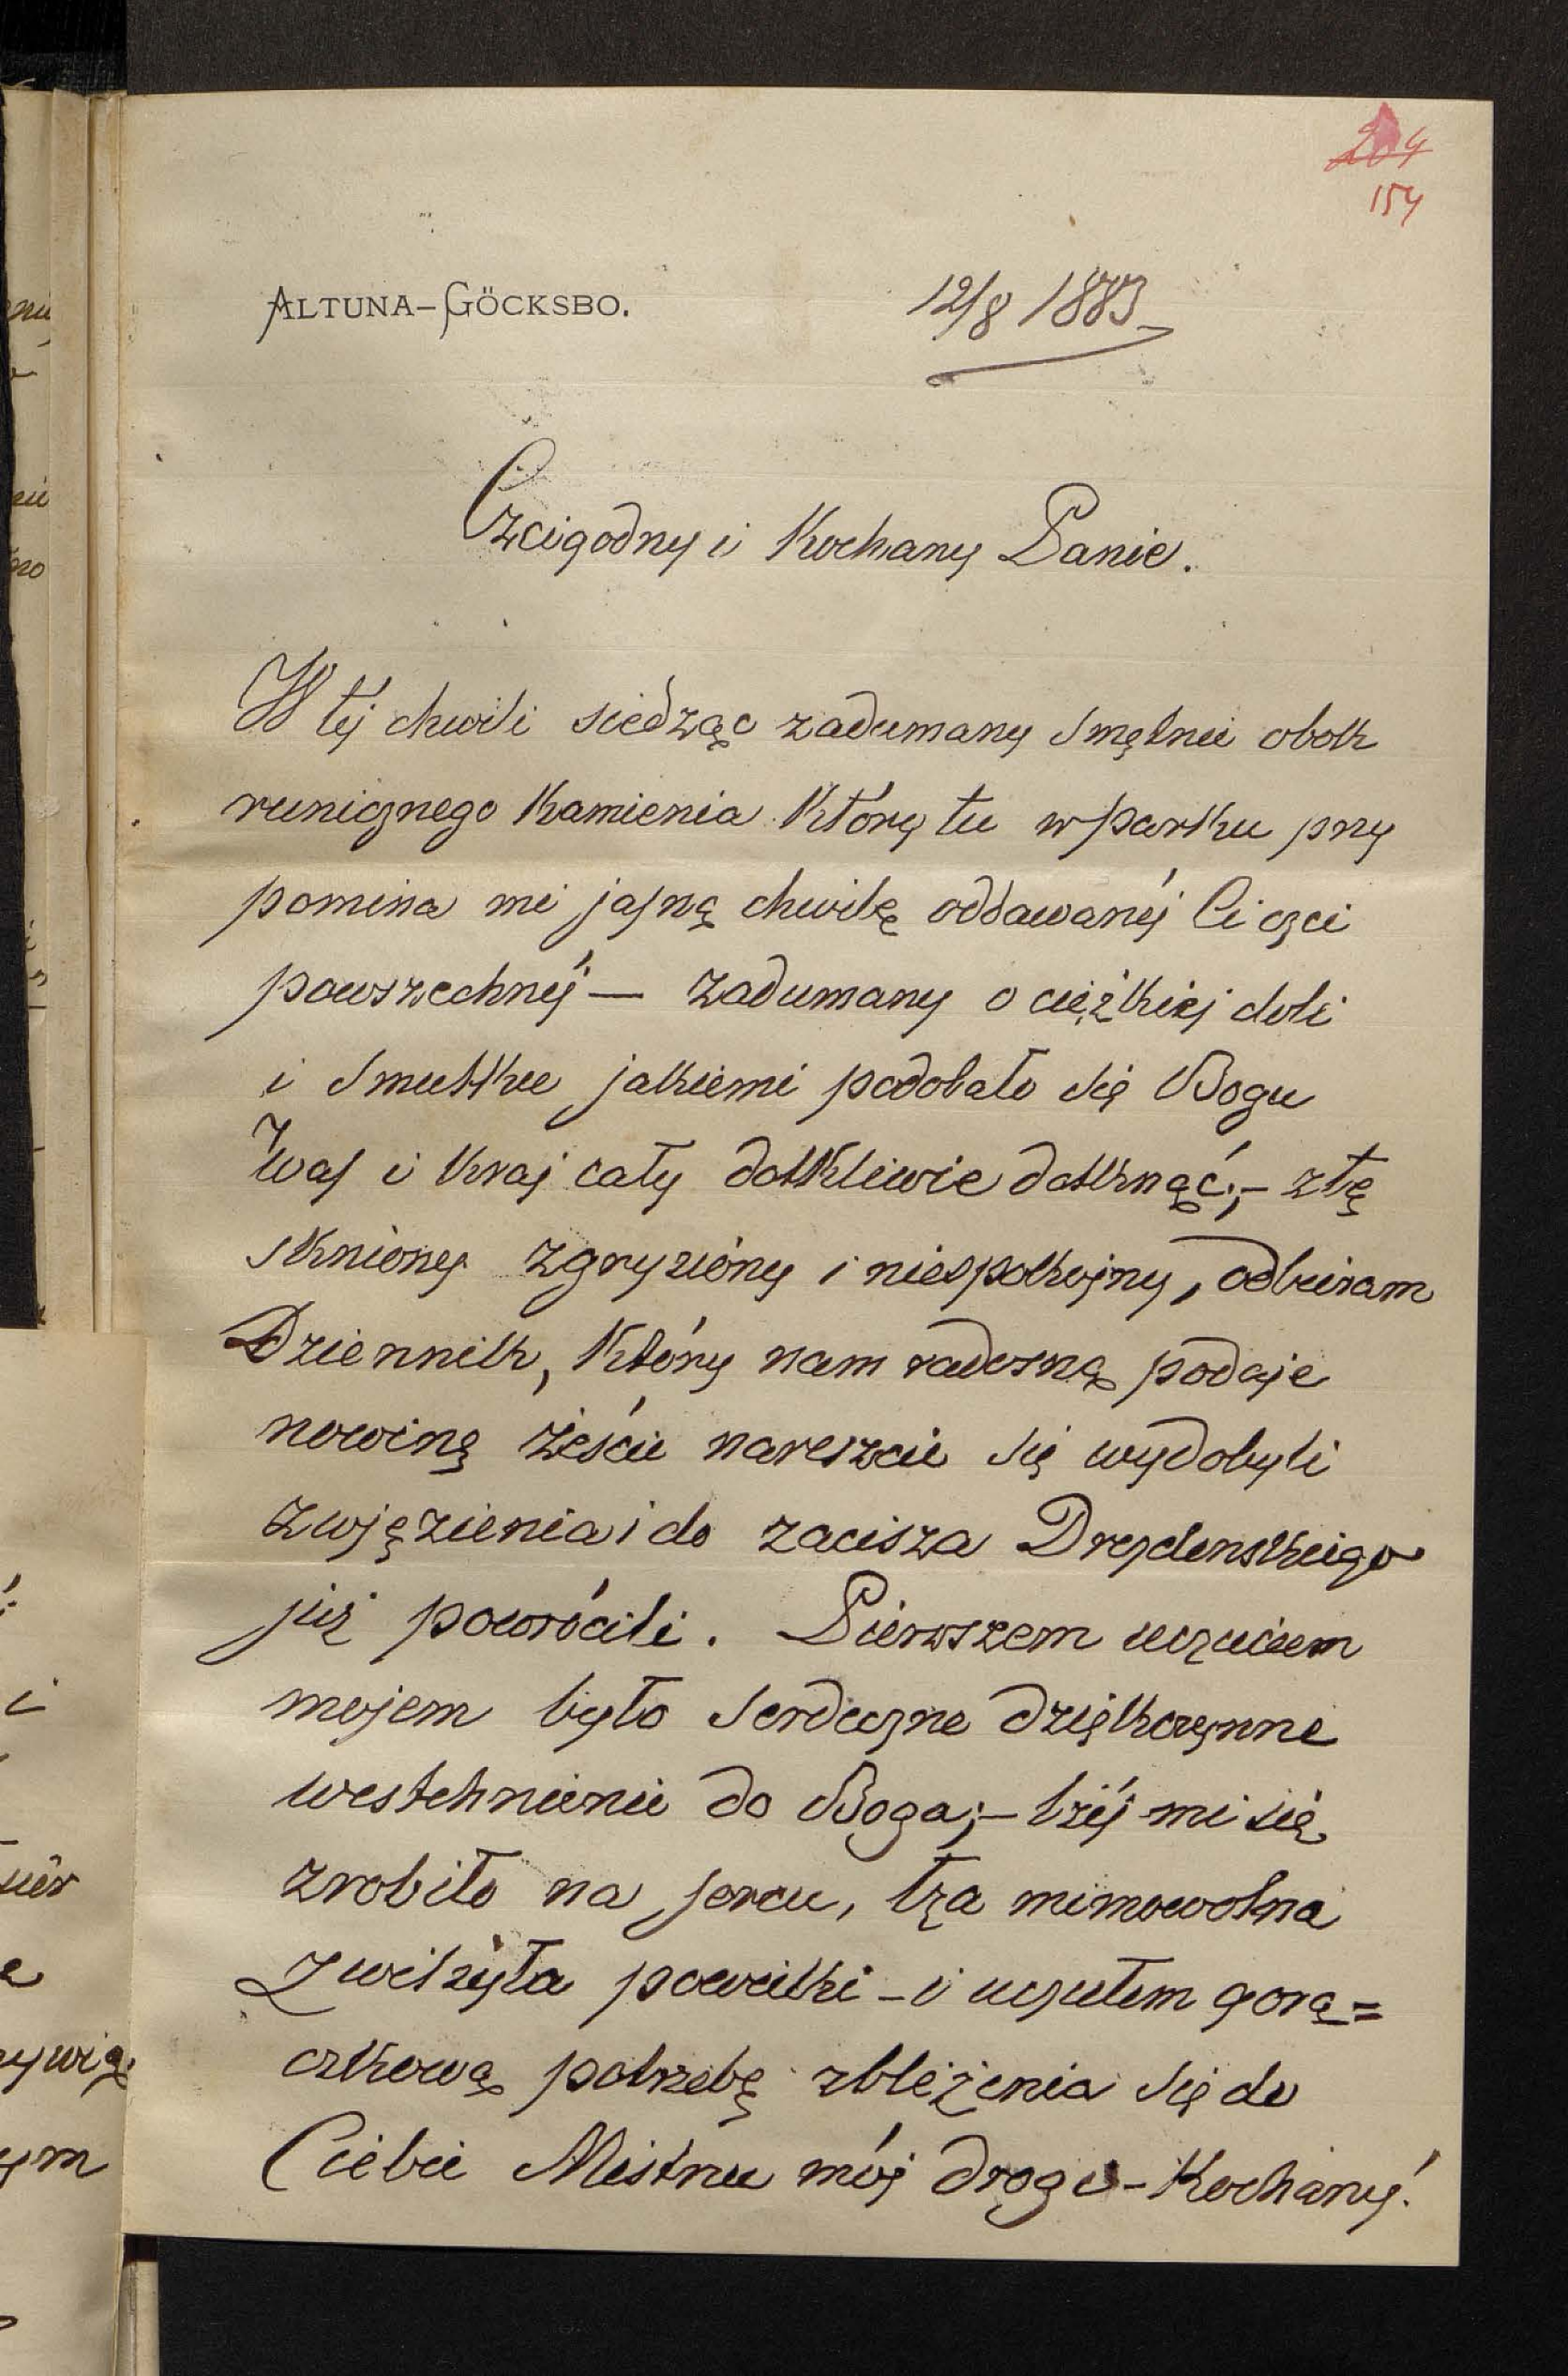 204
154
ALTUNA-GÖCKSBO.
12/8 1883
Czcigodny i Kochany Panie.
W téj chwili siedząc zadumany smętnie obok
runicznego kamienia który tu w parku przy
pomina mi jasną chwilę oddawanéj Ci czci
powszechnéj — zadumany o ciężkiej doli
i smutku jakiemi podobało się Bogu
Was i kraj cały dotkliwie dotknąć; – ztę
skniony zgryziony i niespokojny, odbieram
Dziennik, który nam radosną podaje
nowinę żeście nareszcie się wydobyli
z więzienia i do zacisza Drezdenskiego
już powrócili. Pierwszem uczuciem
mojem było serdeczne dziękczynne
westchnienie do Boga; – lżéj mi się
zrobiło na sercu, łza mimowolna
zwilżyła powieki – i uczułem gorą=
czkową potrzebę zbliżenia się do
Ciebie Mistrzu mój drogi – Kochany!
nu
nie
no
i
e
ywią
ym